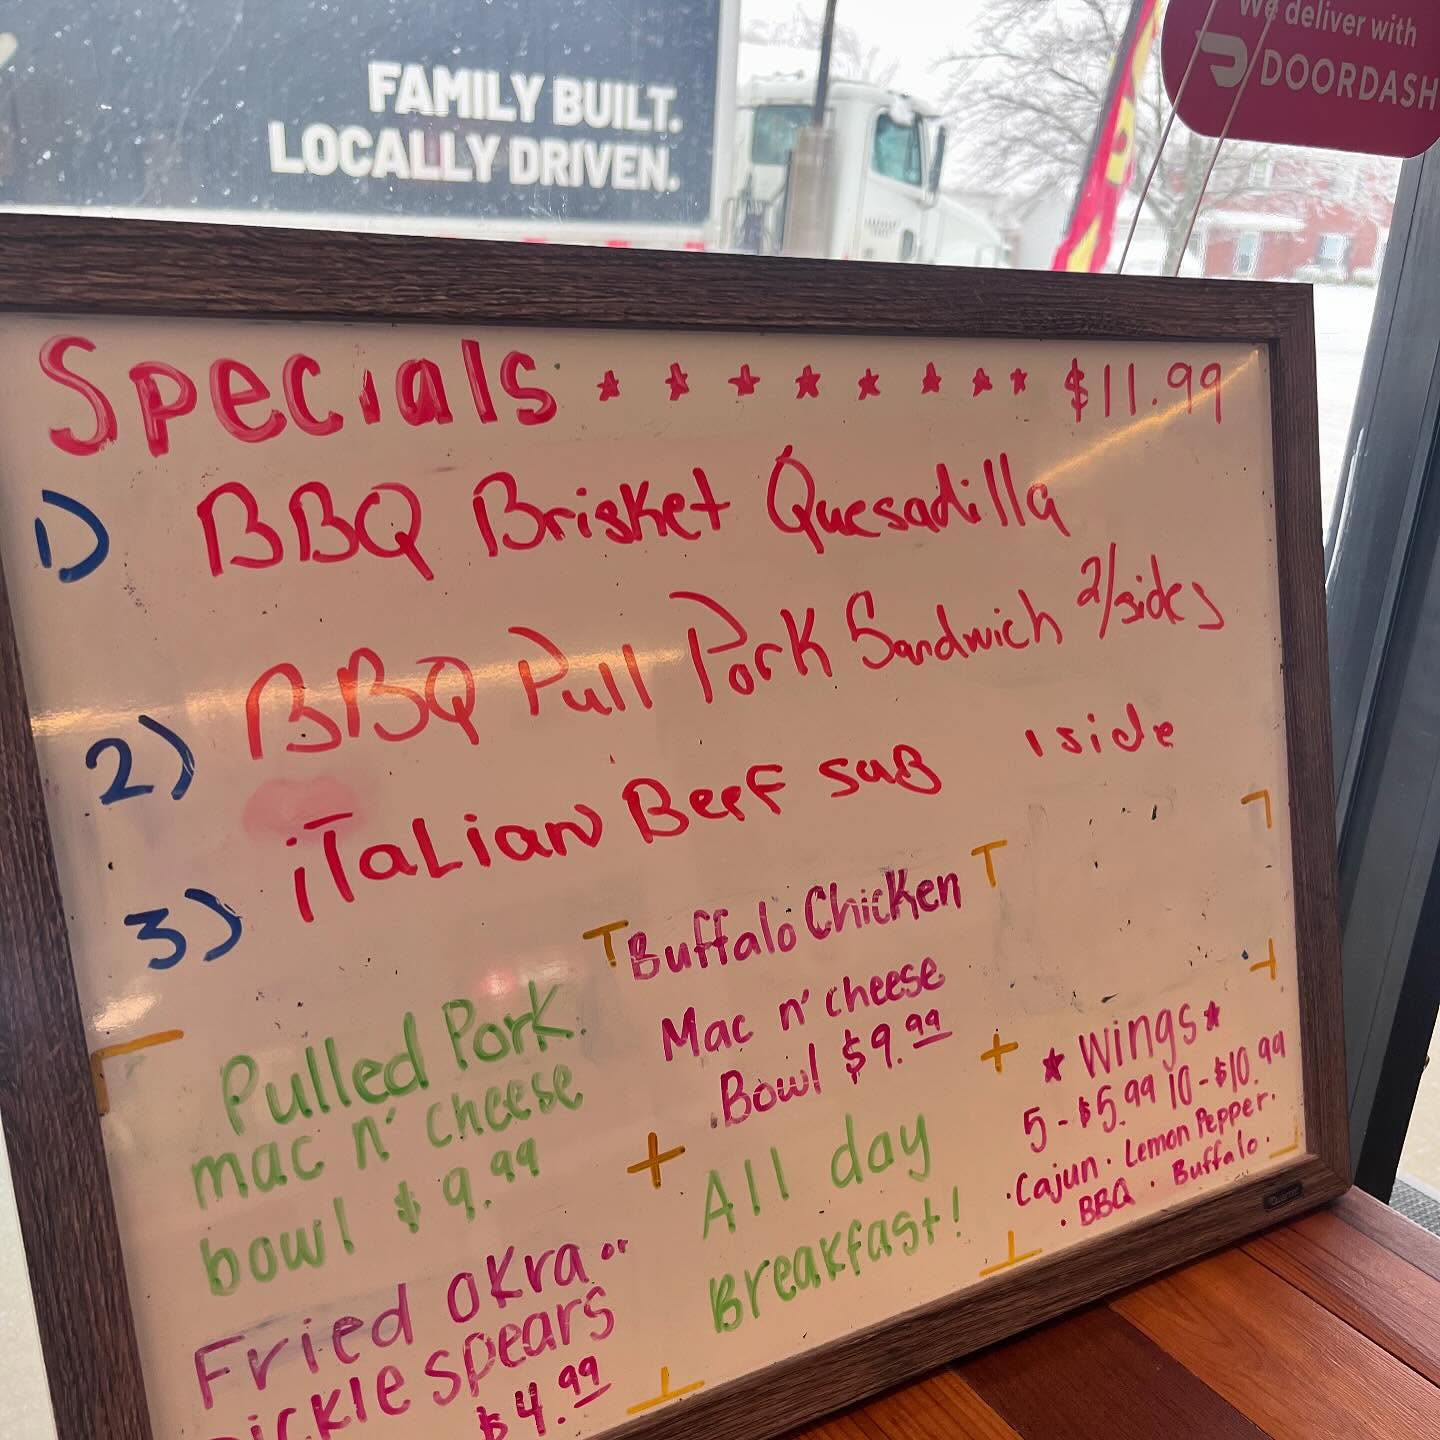 FAMILY BUILT.
LOCALLY DRIVEN.
We deliver with
DOORDASH
Specials $11.99
1) BBQ Brisket Quesadilla
2) BBQ Pull Pork Sandwich 2/sides
3) iTaLian Beef suB 1 side
Pulled Pork
mac n' cheese
bowl $9.99
Fried okra or
pickle spears
$4.99
Buffalo Chicken
Mac n' cheese
Bowl $9.99
All day
Breakfast!
Wings
5-$5.99 10-$10.99
·Cajun· Lemon Pepper·
· BBQ · Buffalo·